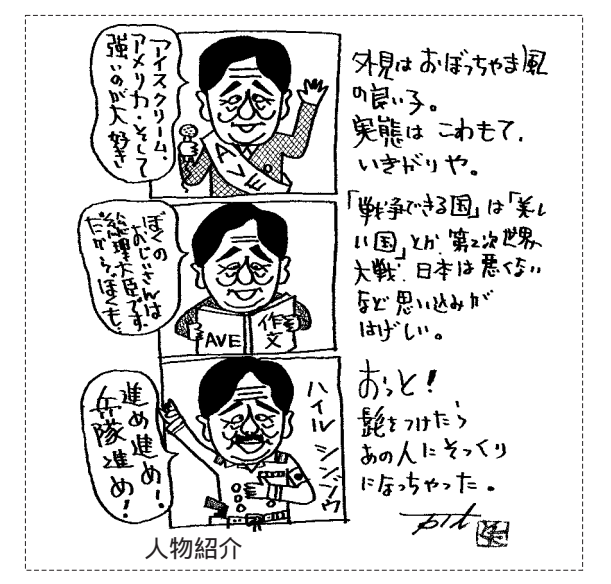 アイスクリーム、
アメリカ・そして
強いのが大好き
AVE
外見はおぼっちゃま風
の良い子。
実態はこわもて、
いきがりや。
ぼくの
おじいさんは
総理大臣です、
だからぼくも、
AVE
作文
「戦争できる国」は「美し
い国」とか第2次世界
大戦、日本は悪くない
など思い込みが
はげしい。
進め進め!
兵隊進め!
ハイルシンゾウ
おっと!
髭をつけたら
あの人にそっくり
になっちゃった。
人物紹介